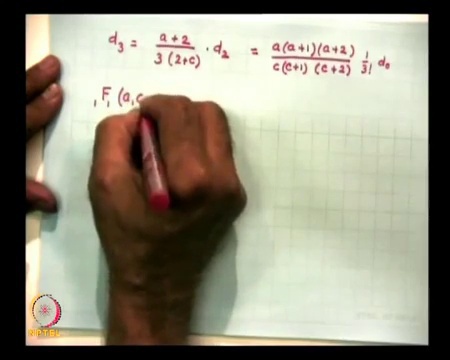 d₃ = (a+2)/(3(2+c)) · d₂ = (a(a+1)(a+2))/(c(c+1)(c+2)) 1/3! d₀
₁F₁ (a, c
NPTEL